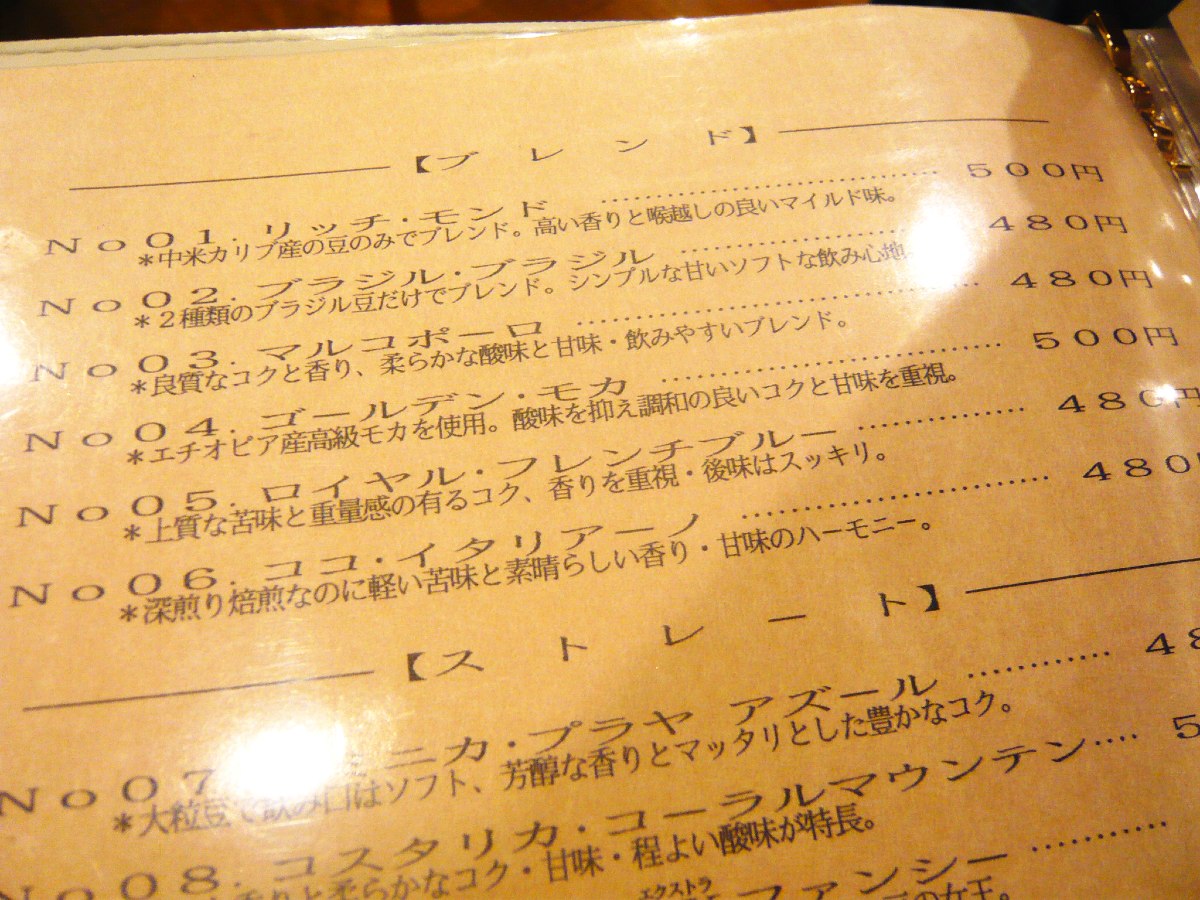 【ブレンド】
No01.リッチ・モンド ………………………… 500円
＊中米カリブ産の豆のみでブレンド。高い香りと喉越しの良いマイルド味。
No02.ブラジル・ブラジル ………………… 480円
＊2種類のブラジル豆だけでブレンド。シンプルな甘いソフトな飲み心地。
No03.マルコポーロ ………………………… 480円
＊良質なコクと香り、柔らかな酸味と甘味・飲みやすいブレンド。
No04.ゴールデン・モカ …………………… 500円
＊エチオピア産高級モカを使用。酸味を抑え調和の良いコクと甘味を重視。
No05.ロイヤル・フレンチブルー ………… 480円
＊上質な苦味と重量感の有るコク、香りを重視・後味はスッキリ。
No06.ココ・イタリアーノ ………………… 480
＊深煎り焙煎なのに軽い苦味と素晴らしい香り・甘味のハーモニー。
【ストレート】
No07 ニカ・プラヤ アズール ………… 48
＊大粒豆で飲み口はソフト、芳醇な香りとマッタリとした豊かなコク。
No08.コスタリカ・コーラルマウンテン…… 5
香りと柔らかなコク・甘味・程よい酸味が特長。
エクストラ
ファンシー …………
の女王。